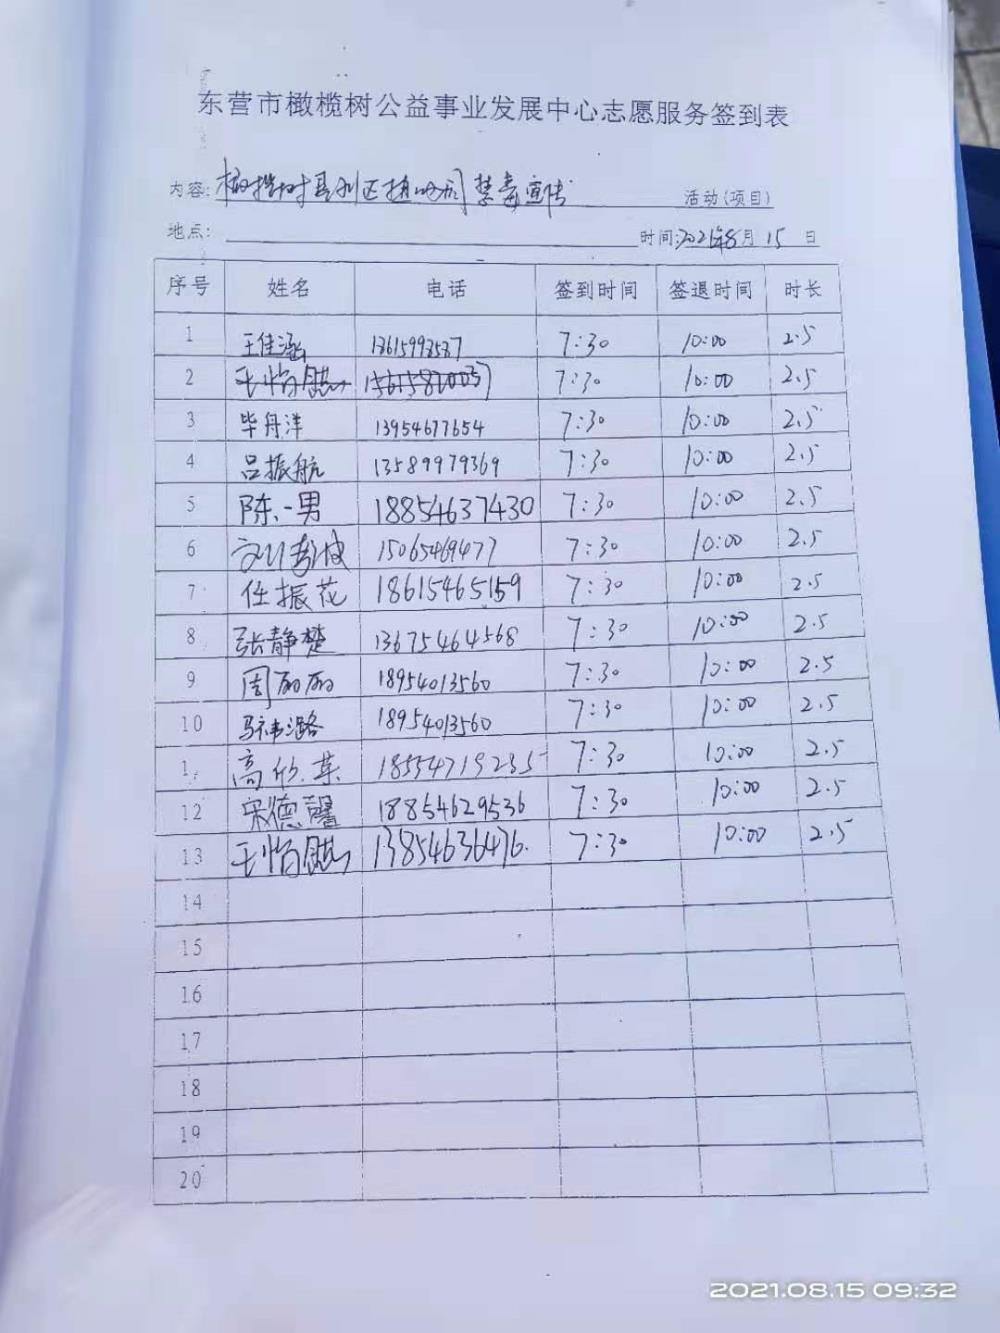 东营市橄榄树公益事业发展中心志愿服务签到表
内容: 橄榄树垦利区 禁毒宣传 活动(项目)
地点: 时间: 2021年8月15日
序号 姓名 电话 签到时间 签退时间 时长
1 王佳涵 13615993587 7:30 10:00 2.5
2 王怡 15615820037 7:30 10:00 2.5
3 毕丹洋 13954677654 7:30 10:00 2.5
4 吕振航 13589979369 7:30 10:00 2.5
5 陈一男 18854637430 7:30 10:00 2.5
6 15065469477 7:30 10:00 2.5
7 任振花 18615465159 7:30 10:00 2.5
8 张静楚 13675464568 7:30 10:00 2.5
9 周丽丽 18954013560 7:30 10:00 2.5
10 18954013560 7:30 10:00 2.5
1 高 18554719235 7:30 10:00 2.5
12 宋德馨 18854629536 7:30 10:00 2.5
13 王怡 13854636476. 7:30 10:00 2.5
14
15
16
17
18
19
20
2021.08.15 09:32